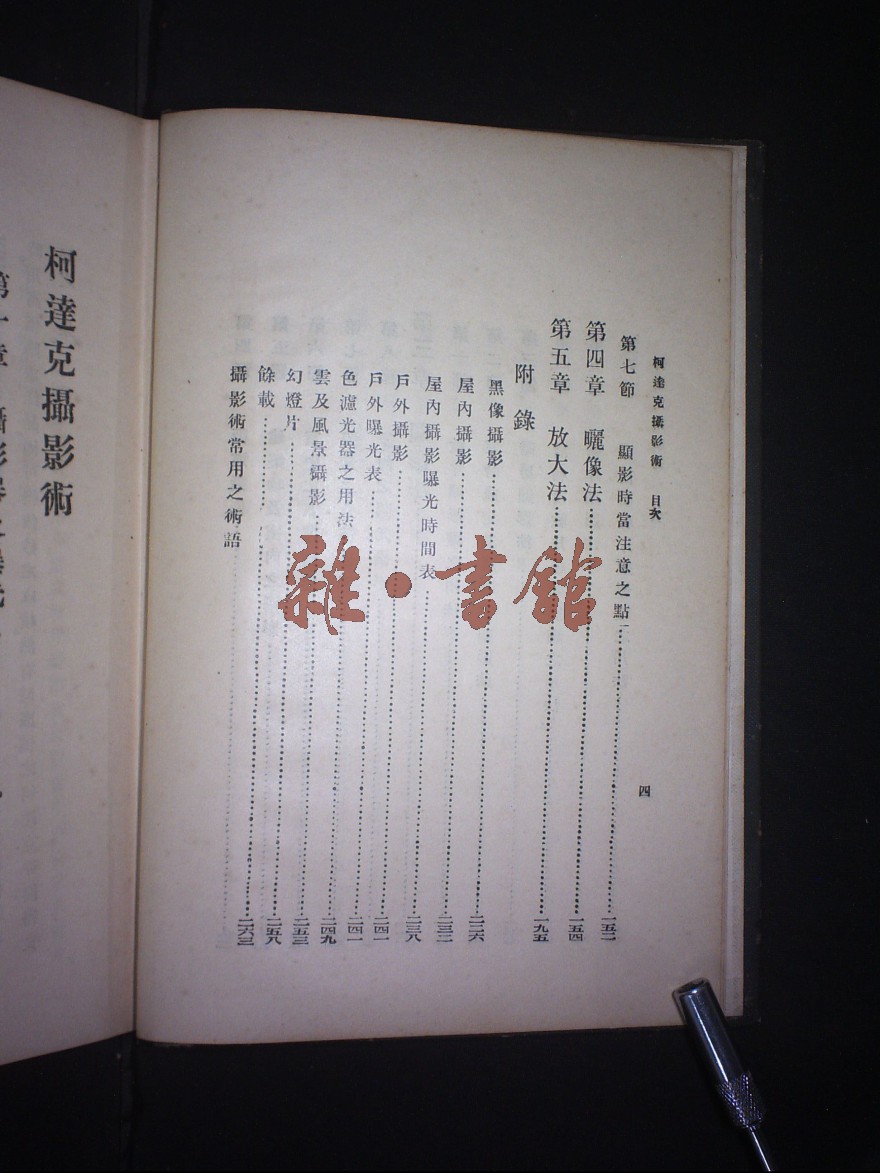 柯達克攝影術 目次
四
第七節 顯影時當注意之點 一五二
第四章 曬像法 一五四
第五章 放大法 一九五
附錄
黑像攝影 二二六
屋內攝影 二三二
屋內攝影曝光時間表 二三八
戶外攝影 二四一
戶外曝光表 二四一
色濾光器之用法 二四九
雲及風景攝影 二五三
幻燈片 二五八
餘載 二六三
攝影術常用之術語
雜·書館
柯達克攝影術
第一章 攝影器之